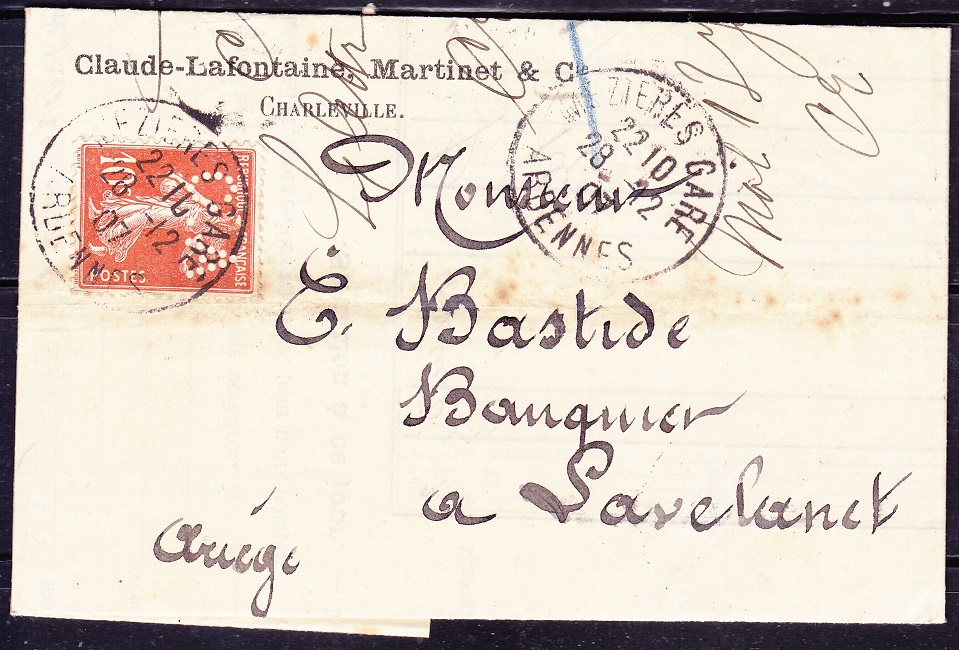 Claude-Lafontaine, Martinet & Cie
CHARLEVILLE.
MEZIERES GARE
22 10
28 -12
07
ARDENNES
REPUBLIQUE FRANÇAISE
10
POSTES
MEZIERES GARE
22 10
28 -12
ARDENNES
Monsieur
E. Bastide
Banquier
a Lavelanet
Ariège